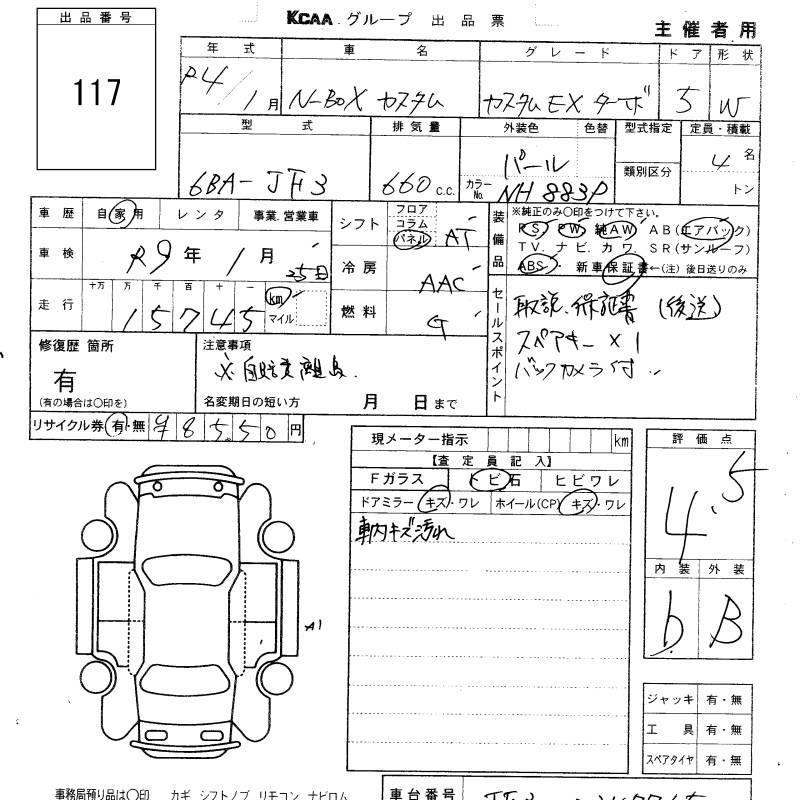 出品番号
117
KCAA グループ 出品票
主催者用
年式 車名 グレード ドア 形状
R4/1月 N-BOX カスタム カスタムEX ターボ 5 W
型式 排気量 外装色 色替 型式指定 定員・積載
6BA-JF3 660 C.C. パール 4名
カラーNo. NH883P 類別区分 トン
車歴 自家用 レンタ 事業.営業車
車検 R9年1月25日
走行 十万 万 千 百 十 一 km マイル
15745
シフト フロア コラム パネル AT
冷房 AAC
燃料 G
装備品 ※純正のみ〇印をつけて下さ い。
PS PW 純AW AB(エアバック)
TV. ナビ. カワ. SR(サンルーフ)
ABS・ 新車保証書←(注)後日送りのみ
セールスポイント
取説.保証書 (後送)
スペアキー×1
バックカメラ付
修復歴 箇所
有
(有の場合は〇印を)
注意事項
※自賠責離島
名変期日の短い方 月 日まで
リサイクル券 有・無 ¥8550円
現メーター指示 km
【査定員記入】
Fガラス トビ石 ヒビワレ
ドアミラー キズ・ワレ ホイール(CP) キズ・ワレ
車内キズ汚れ
評価点
4.5
内装 外装
b B
A1
ジャッキ 有・無
工具 有・無
スペアタイヤ 有・無
事務局預り品は〇印 カギ シフトノブ リモコン ナビロム
車台番号